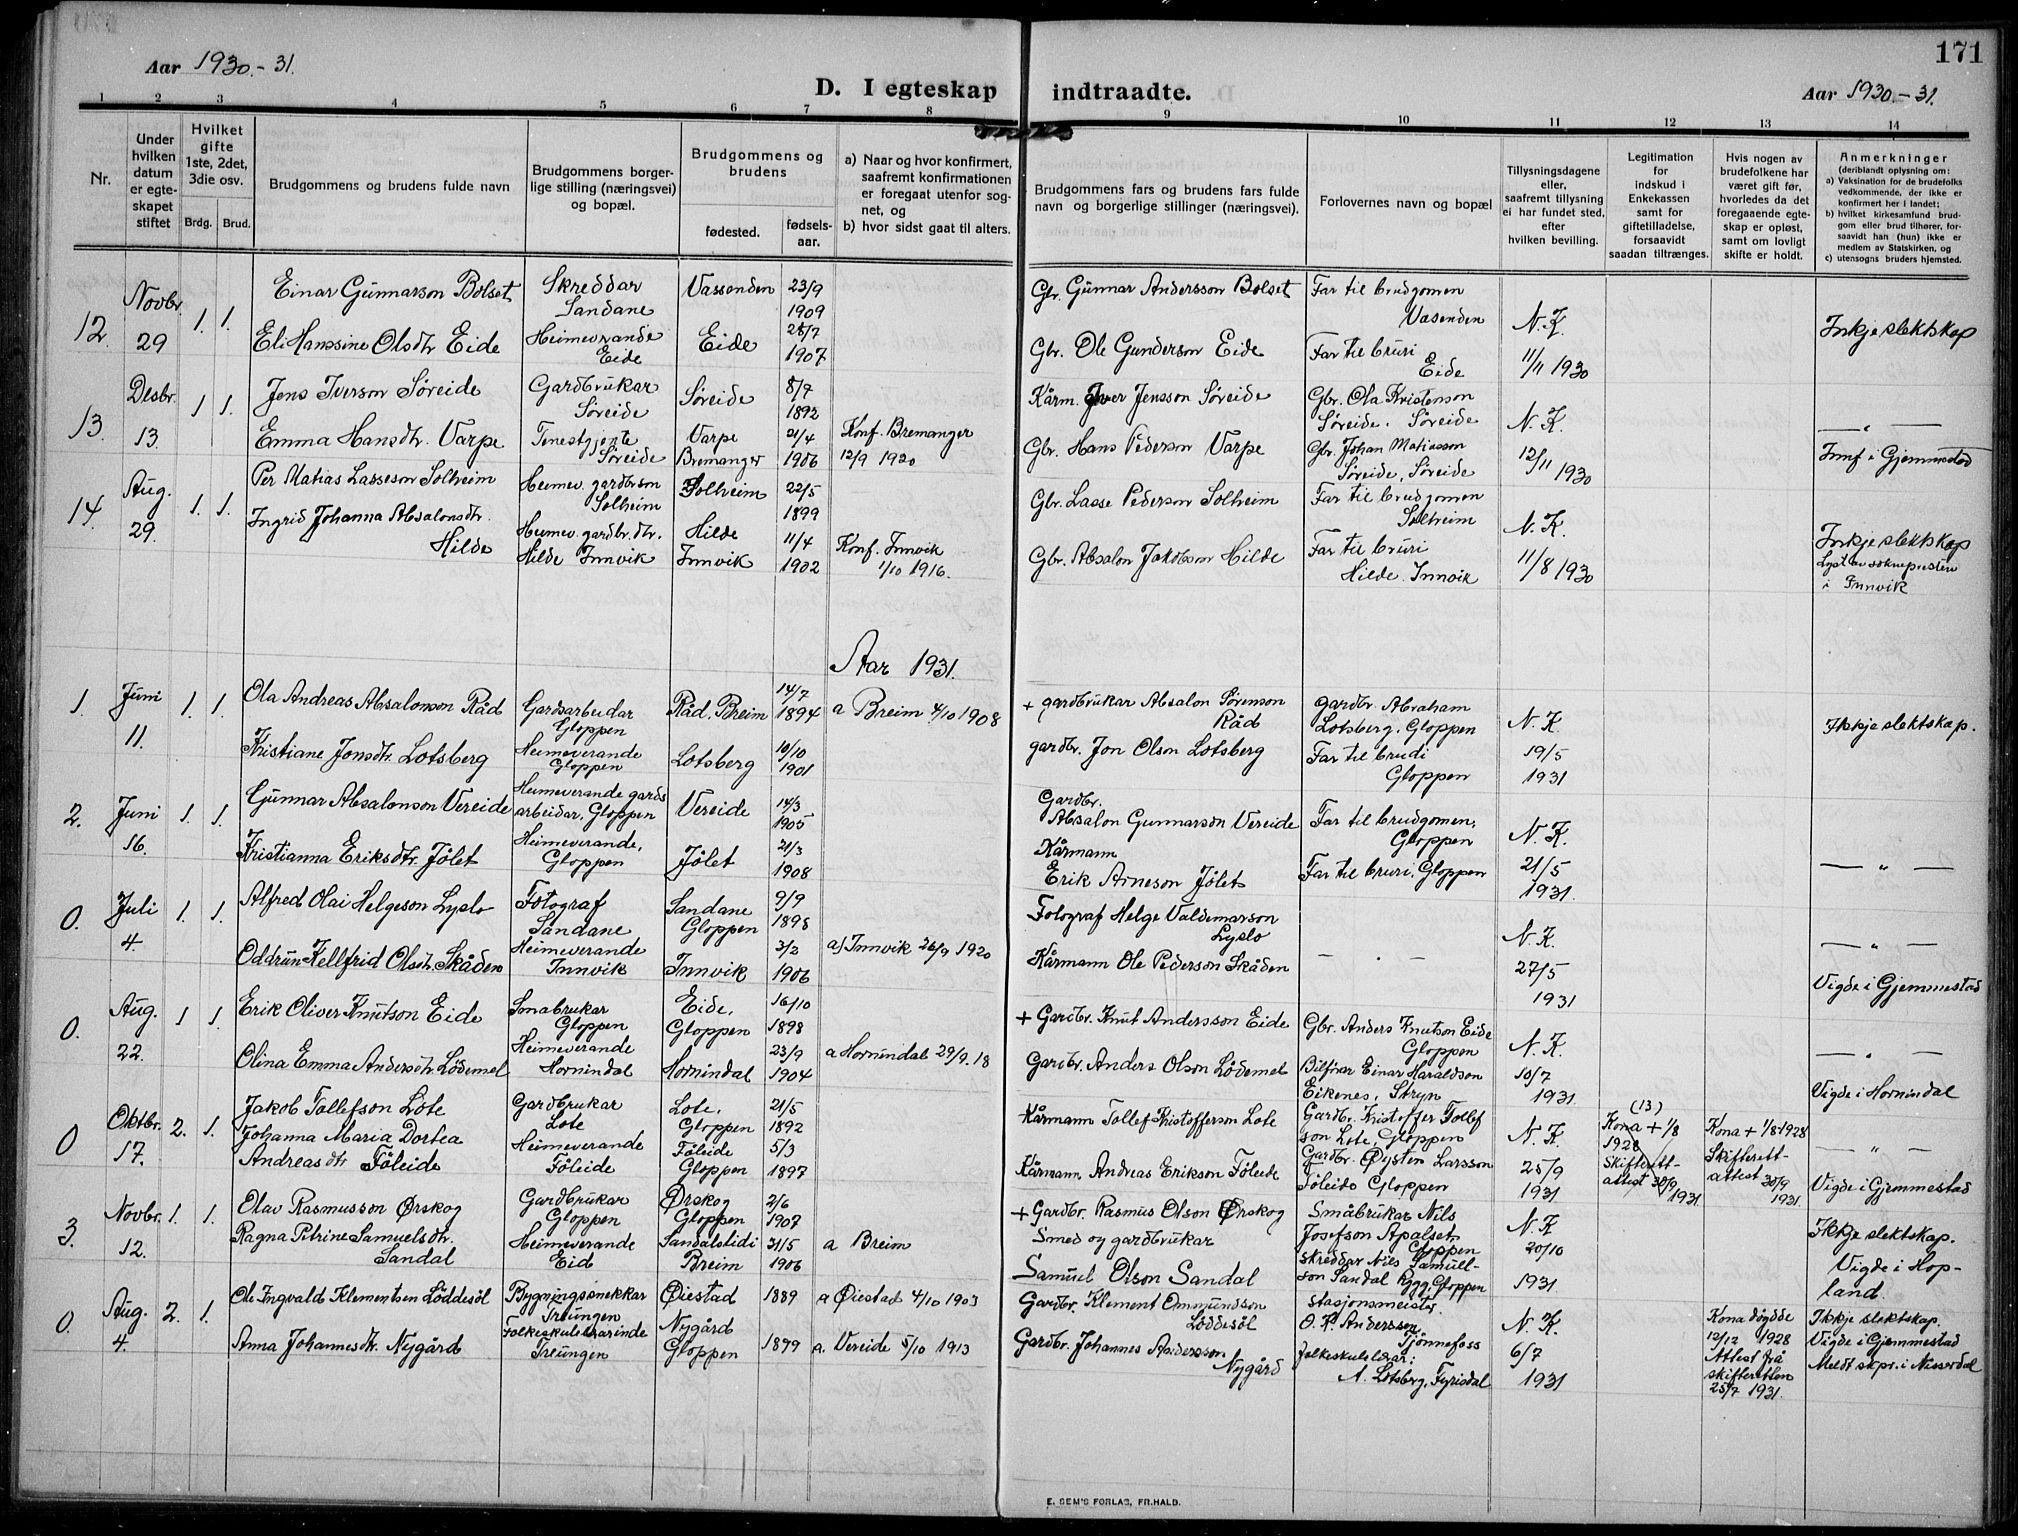 171
Aar 1930.-31.
D. I egteskap indtraadte.
Aar 1930.-31.
1 2 3 4 5 6 7 8 9 10 11 12 13 14
Nr.
Under hvilken datum er egte-skapet stiftet
Hvilket gifte 1ste, 2det, 3die osv.
Brdg. Brud.
Brudgommens og brudens fulde navn
Brudgommens borger-lige stilling (næringsvei) og bopæl.
Brudgommens og brudens
fødested.
fødsels-aar.
a) Naar og hvor konfirmert, saafremt konfirmationen er foregaat utenfor sog-net, og
b) hvor sidst gaat til alters.
Brudgommens fars og brudens fars fulde navn og borgerlige stillinger (næringsvei).
Forlovernes navn og bopæl
Tillysningsdagene eller, saafremt tillysning ei har fundet sted, efter hvilken bevilling.
Legitimation for indskud i Enkekassen samt for giftetilladelse, forsaavidt saadan tiltrænges.
Hvis nogen av brudefolkene har været gift før, hvorledes da det foregaaende egte-skap er opløst, samt om lovligt skifte er holdt.
Anmerkninger (deriblandt oplysning om:
a) Vaksination for de brudefolks vedkommende, der ikke er konfirmert her i landet;
b) hvilket kirkesamfund brud-gom eller brud tilhører, for-saavidt han (hun) ikke er medlem av Statskirken, og
c) utensogns bruders hjemsted.
12 Novbr. 29 1. 1.
Einar Gunnarson Bolset Skreddar Sandane Vassenden 23/9 1909
Gbr. Gunnar Andersson Bolset Far til brudgomen Vasenden N. K.
Eli Hanssine Olsdtr Eide Heimeverande Eide Eide 28/7 1907
Gbr. Ole Gunderson Eide Far til bruri Eide 11/11 1930
Inkje slektskap
13. Desbr. 13. 1 1.
Jens Iverson Søreide Gardbrukar Søreide Søreide 8/7 1892
Kårm. Iver Jensson Søreide Gbr. Ola Kristenson Søreide. Søreide N. K.
Emma Hansdtr. Varpe Tenestgjente Søreide Varpe Bremanger 21/4 1906 Konf. Bremanger 12/9 1920
Gbr. Hans Pederson Varpe Gbr. Johan Matiasson Søreide, Søreide 12/11 1930
— " —
Innf i Gjemmestad
14. Aug. 29. 1. 1.
Per Matias Lasseson Solheim Heimev. gardbr.son Solheim Solheim 22/5 1899
Gbr. Lasse Pederson Solheim Far til brudgomen Solheim N. K.
Ingrid Johanna Absalonsdtr. Hilde Heimev. gardbr.dtr. Hilde Innvik Hilde Innvik 11/4 1902 Konf. Innvik 1/10 1916.
Gbr. Absalon Jakobson Hilde Far til bruri Hilde. Innvik 11/8 1930
Inkje slektskap
Lyst av soknepresten i Innvik
Aar 1931.
1. Juni 11. 1. 1.
Ola Andreas Absalonson Råd Gardsarbeidar Gloppen Råd. Breim 14/7 1894 a Breim 4/10 1908
+ gardbrukar Absalon Sørenson Råd gardbr. Abraham Lotsberg, Gloppen N. K.
Kristiane Jonsdtr. Lotsberg Heimeverande Gloppen Lotsberg 10/10 1901
gardbr. Jon Olson Lotsberg Far til brudi Gloppen 19/5 1931
Ikkje slektskap.
2. Juni 16. 1. 1.
Gunnar Absalonson Vereide Heimeverande gards arbeidar, Gloppen Vereide 14/3 1905
Gardbr. Absalon Gunnarson Vereide Far til brudgomen, Gloppen N. K.
Kristianna Eriksdtr. Jølet Heimeverande, Gloppen Jølet 21/3 1908
Kårmann Erik Arneson Jølet Far til bruri, Gloppen 21/5 1931.
— " —
0. Juli 4. 1. 1.
Alfred Olai Helgeson Lyslo Fotograf Sandane Sandane Gloppen 9/9 1898
Fotograf Helge Valdemarson Lyslo N. K.
Oddrun Kellfrid Olsdtr. Skåden Heimeverande Innvik Innvik 3/2 1906 a) Innvik 26/9 1920
Kårmann Ole Pederson Skåden — . — 27/5 1931
— " —
Vigde i Gjemmestad
0. Aug. 22. 1 1.
Erik Oliver Knutson Eide Småbrukar Gloppen Eide, Gloppen 16/10 1898
+ Gardbr. Knut Andersson Eide Gbr. Anders Knutson Eide Gloppen N. K.
Olina Emma Andersdtr Lødemel Heimeverande Hornindal Hornindal 23/9 1904 a Hornindal 29/9.18
Gardbr. Anders Olson Lødemel Bilfører Einar Haraldson Eikenes, Stryn 10/7 1931
— " —
Vigde i Hornindal
0 Oktbr. 17. 2. 1.
Jakob Tollefson Lote Gardbrukar Lote Lote, Gloppen 21/5 1892
Kårmann Tollef Kristofferson Lote Gardbr. Kristoffer Tollefson Lote, Gloppen N. K.
(13) Kona + 1/8 1928 Skifterett-attest 30/9 1931
Kona + 1/8 1928 Skifterett-attest 30/9 1931.
Johanna Maria Dortea Andreasdtr Føleide Heimeverande Føleide Føleide Gloppen 5/3 1897
Kårmann Andreas Erikson Føleide Gardbr. Øysten Larsson Føleide Gloppen 25/9 1931
— " —
Vigde i Gjemmestad
3. Novbr. 12. 1. 1.
Olav Rasmusson Ørskog Gardbrukar Gloppen Ørskog Gloppen 2/6 1907
+ Gardbr. Rasmus Olson Ørskog Småbrukar Nils Josefson Apalset Gloppen N. K
Ragna Petrine Samuelsdtr. Sandal Heimeverande Eid Sandalstidi Breim 31/5 1906 a Breim
Smed og gardbrukar Samuel Olson Sandal Skreddar Nils Samuelson Sandal Rygg, Gloppen 20/10 1931
Ikkje slektskap.
Vigde i Hop-land.
0. Aug. 4. 2. 1.
Ole Ingvald Klementsen Løddesøl Bygningssnekkar Treungen Øiestad 1889 a Øiestad 4/10 1903
Gardbr. Klement Ommundson Løddesøl Stasjonsmeister O. K. Anderssen Tjønnefoss N. K.
Anna Johannesdtr. Nygård Folkeskulelærarinde Treungen Nygård Gloppen 1899 a. Vereide 5/10 1913
Gardbr. Johannes Andersson Nygård folkeskulelærar: A. Lotsberg, Fyrisdal 6/7 1931
Kona døydde 12/12 1928 Attest frå skifteretten 25/7 1931.
Ikkje slektskap.
Vigde i Gjemmestad
Meldt skpr. i Nisserdal
E. SEM'S FORLAG, FR.HALD.